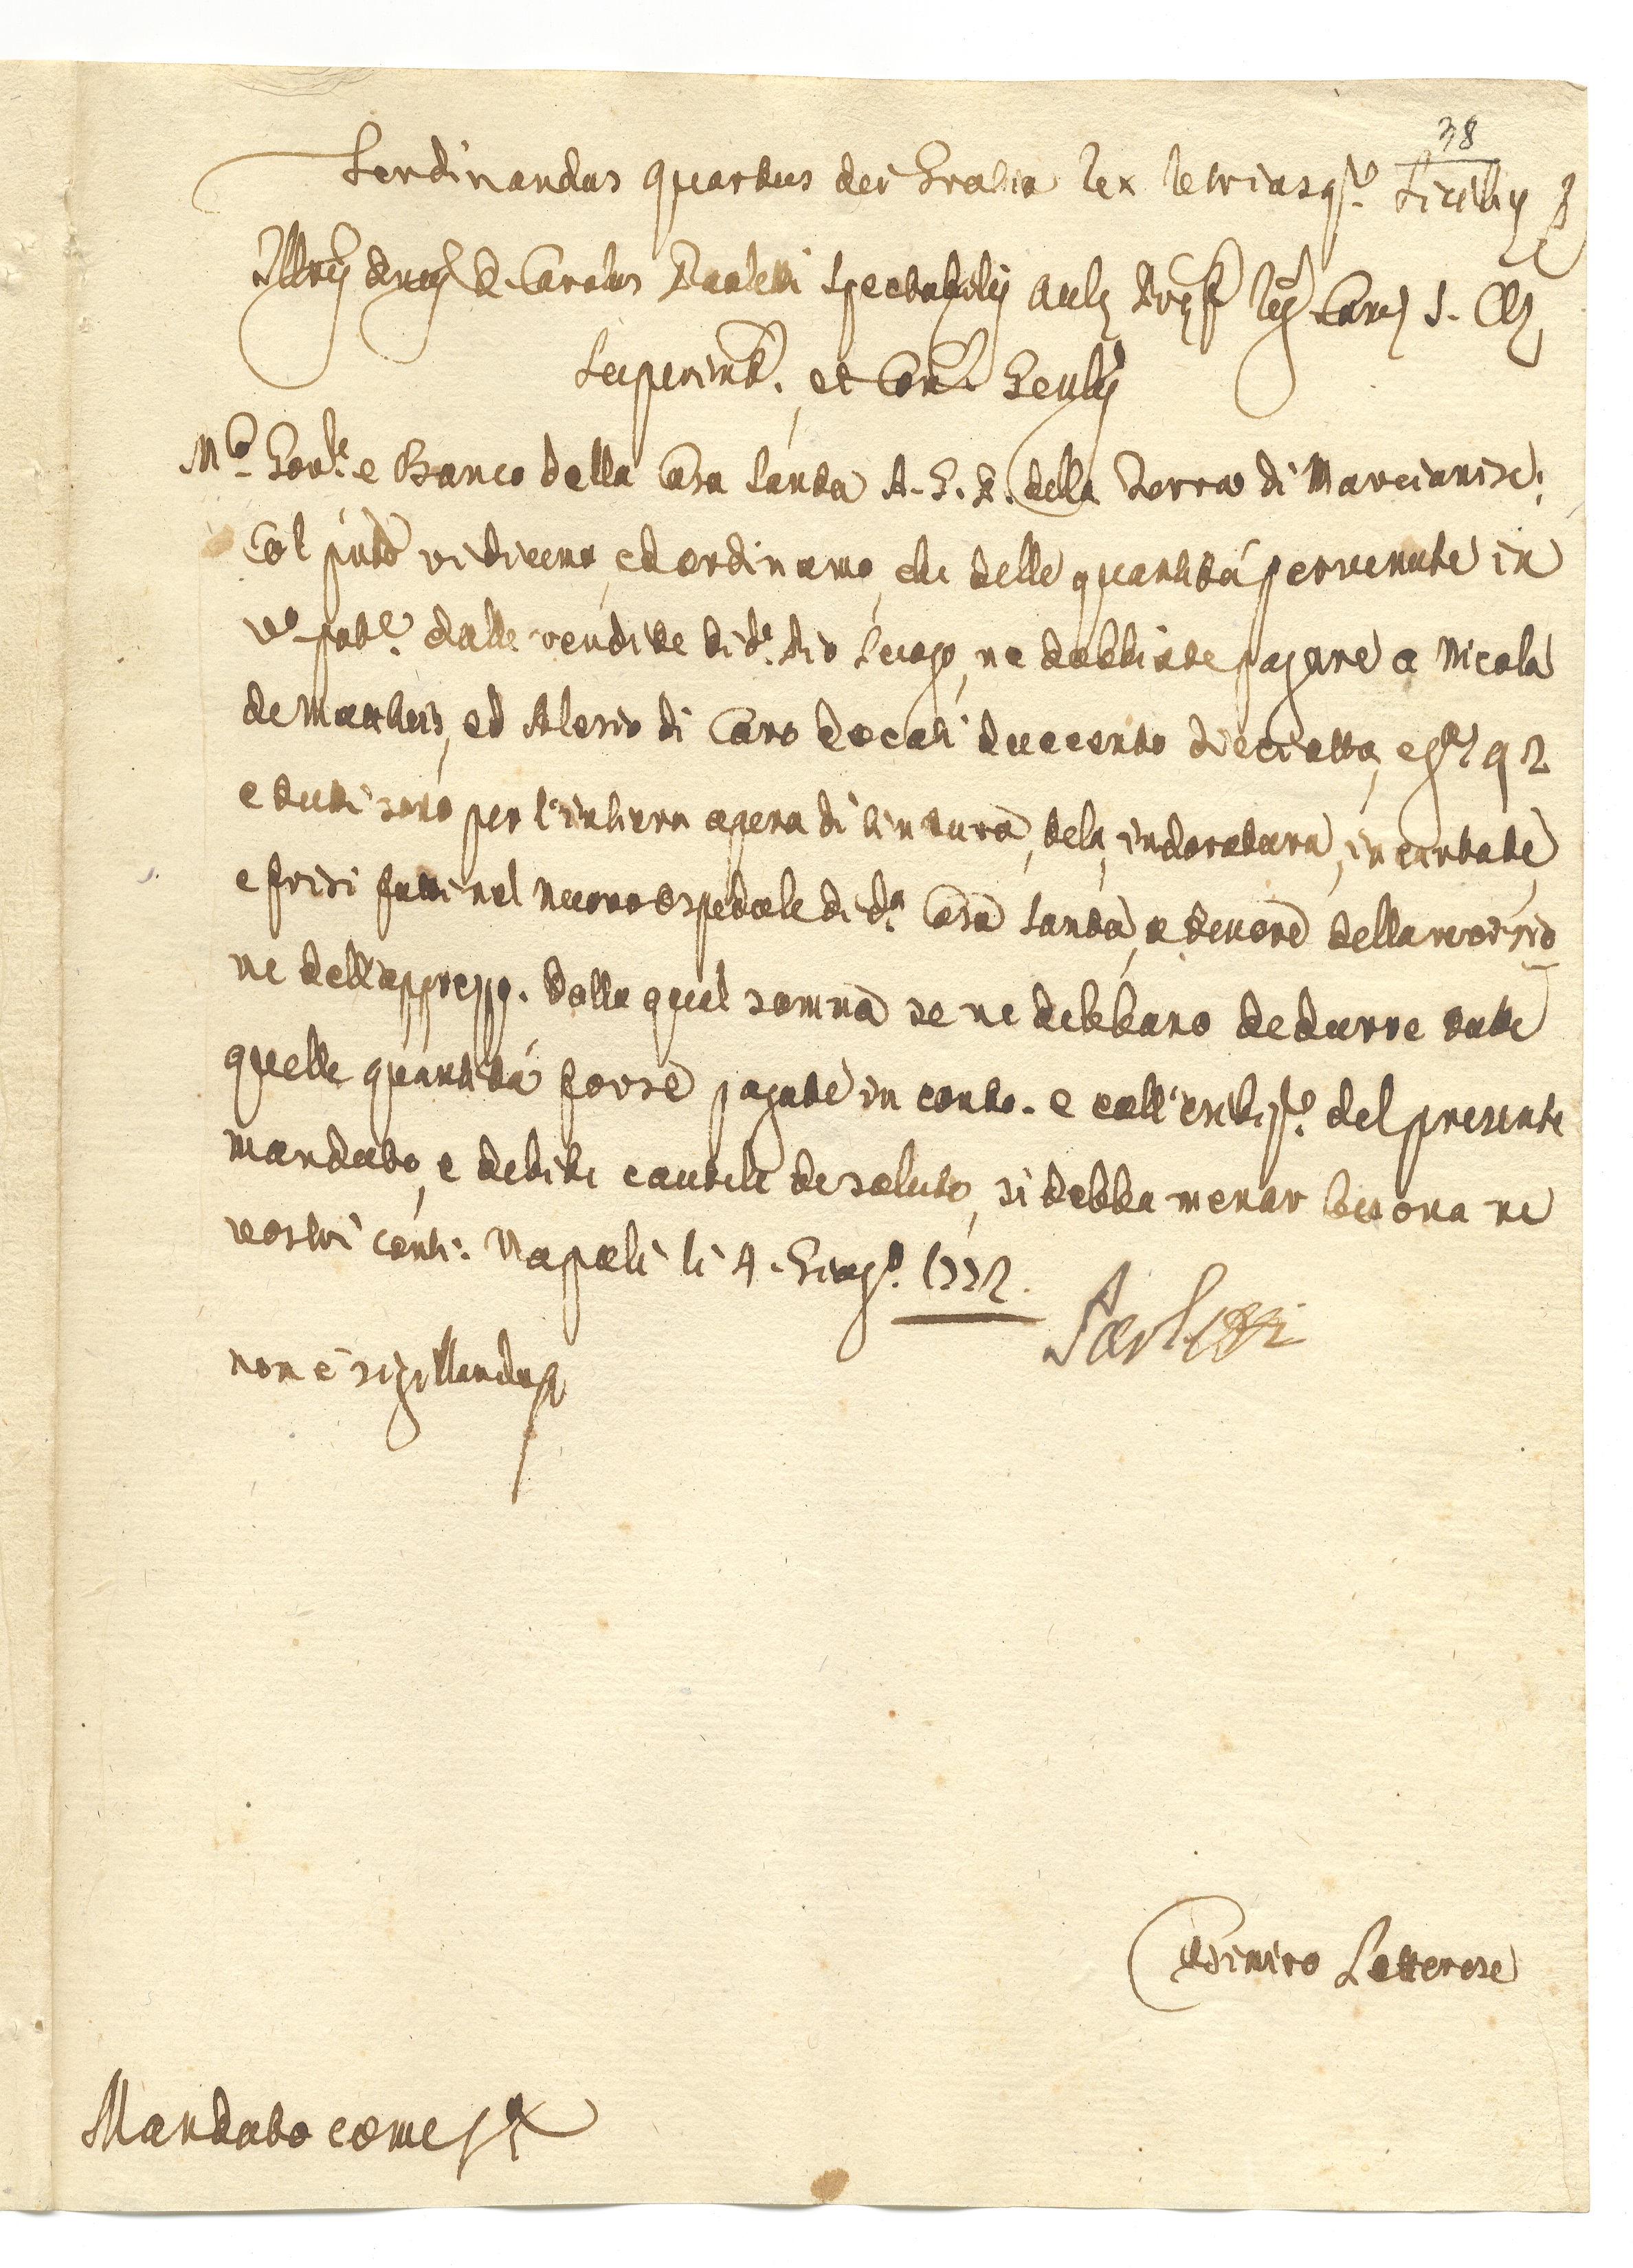 38
Ferdinandus quartus dei Gratia Rex utriusq.e Sicilię
Illris D. Carolus Pauletti Spectabilis Aulę
Superint. et Com. Genlis
M.co Gov.re e Banco della Casa Santa A. G. P. della Terra di Marcianise;
Col pnte vi dicemo, ed ordinamo, che delle quantità pervenute in
v.o pot.e dalle rendite di d.o Pio Luogo, ne debbiate pagare a Nicola
de Matheis, ed Alesio di Caro docati duecento dieciotto, e gr. 92
e tutti sono per l'intiera opera di tintura, tela, indoratura, incartate,
e frisi fatti nel nuovo ospedale di d.a Casa Santa, a tenore della revisio
ne dell'apprezzo. Dalla qual somma se ne debbano dedurre tutte
quelle quantità forse pagate in conto. e coll'esibiz.e del presente
mandato, e debite cautele de soluto, si debba menar buona ne
vostri conti. Napoli li 4. Giug.o 1772.
Pauletti
non è sigillandum
Casimiro Letterese
Mandato come s.a